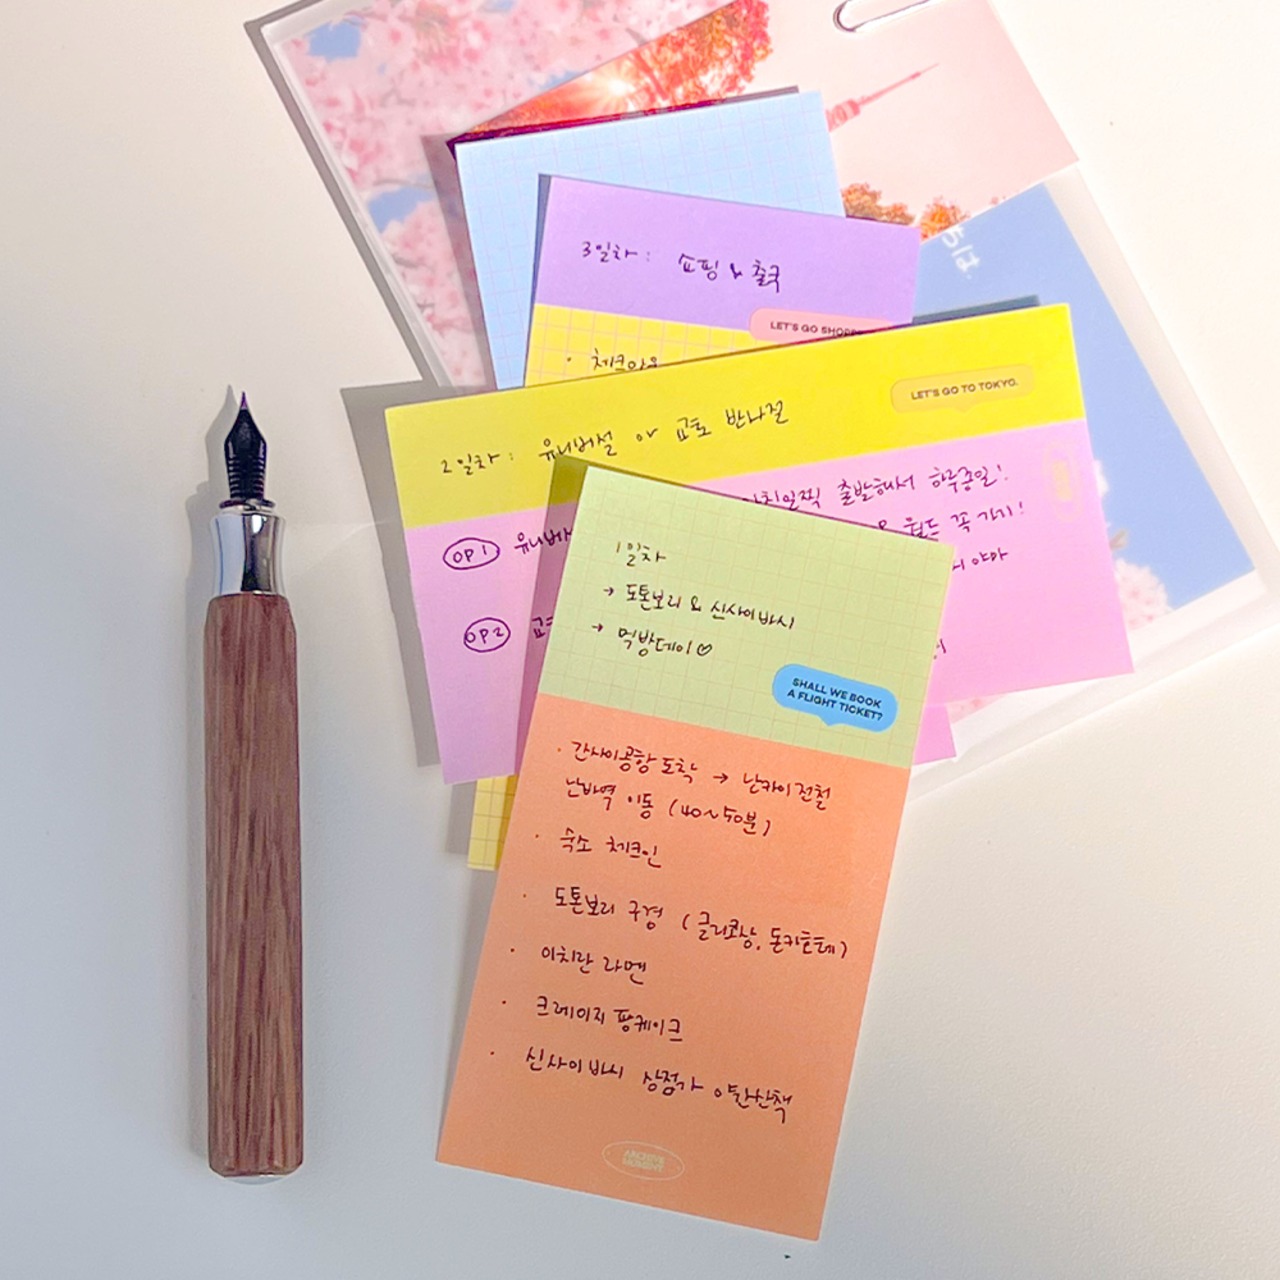 ちは
3일차 : 쇼핑 & 출국
LET'S GO SHOPP
· 체크아웃
LET'S GO TO TOKYO.
2일차 : 유니버설 or 교토 반나절
OP1 유니버
아침일찍 출발해서 하루종일!
월드 꼭 가기!
OP2 교
1일차
→ 도톤보리 & 신사이바시
→ 먹방데이♡
SHALL WE BOOK
A FLIGHT TICKET?
· 간사이공항 도착 → 난카이전철
난바역 이동 (40~50분)
· 숙소 체크인
· 도톤보리 구경 (글리코상, 돈키호테)
· 이치란 라멘
· 크레이지 팡케이크
· 신사이바시 상점가 야간산책
ARCHIVE
MOMENT